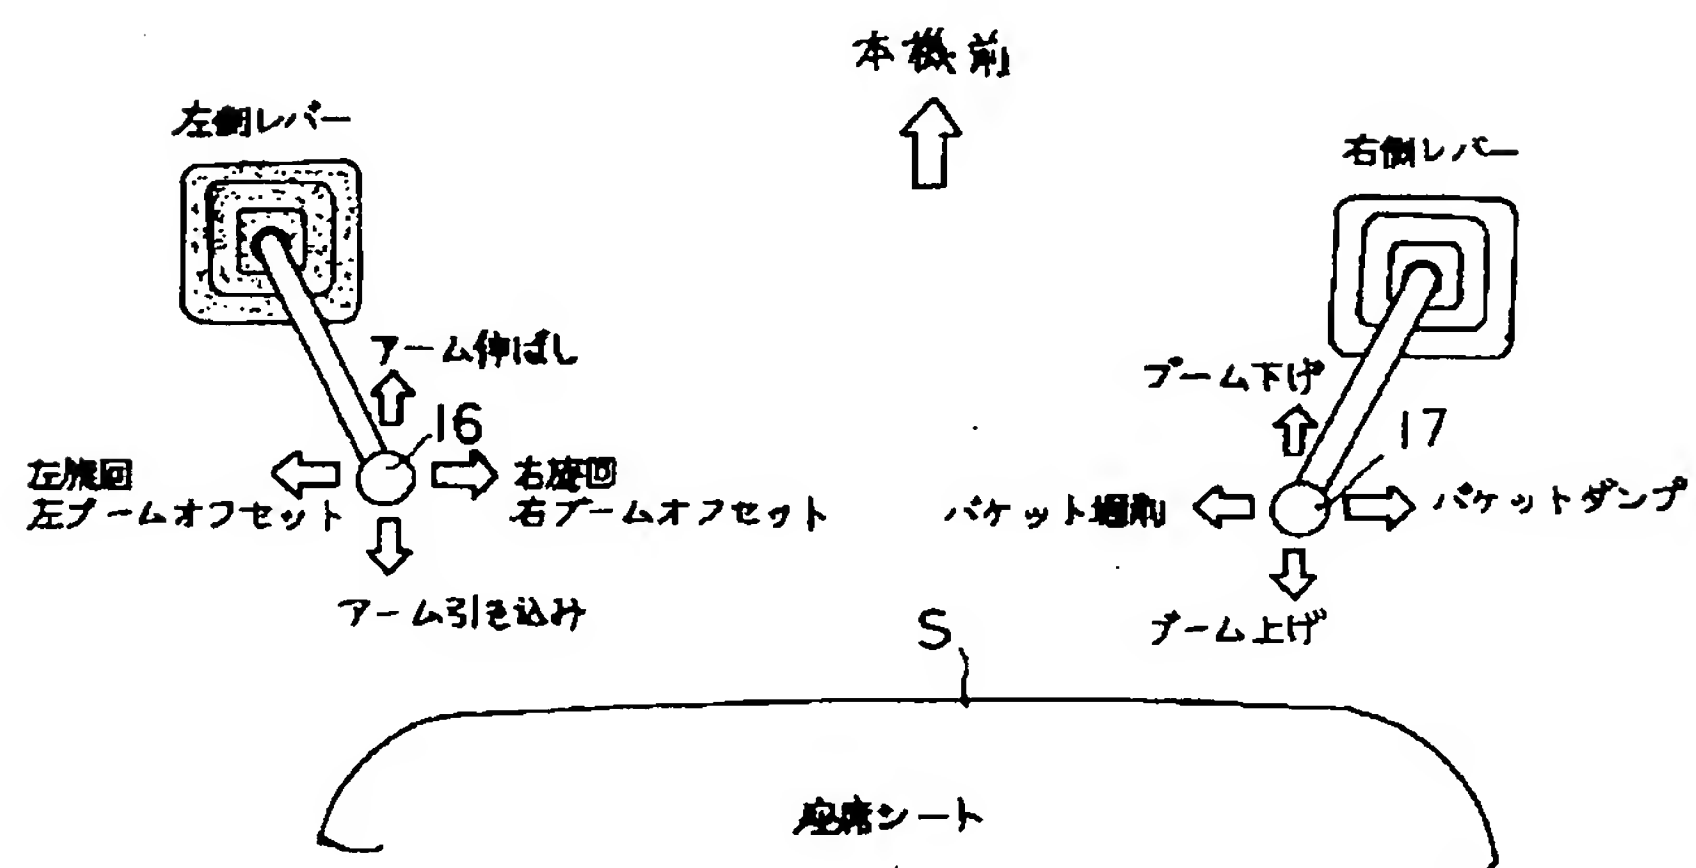 本機前
左側レバー
右側レバー
アーム伸ばし
16
左旋回
左ブームオフセット
右旋回
右ブームオフセット
アーム引き込み
ブーム下げ
17
バケット掘削
バケットダンプ
ブーム上げ
S
座席シート